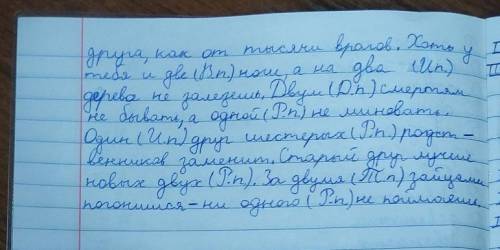 друга, как от тысячи врагов. Хоть у
тебя и две (В.п) ноги, а на два (И.п)
дерева не залезешь. Двум (Д.п) смертям
не бывать, а одной (Р.п) не миновать.
Один (И.п) друг шестерых (Р.п) родст-
венников заменит. Старый друг лучше
новых двух (Р.п). За двумя (Т.п) зайцами
погонишься - ни одного (Р.п) не поймаешь.